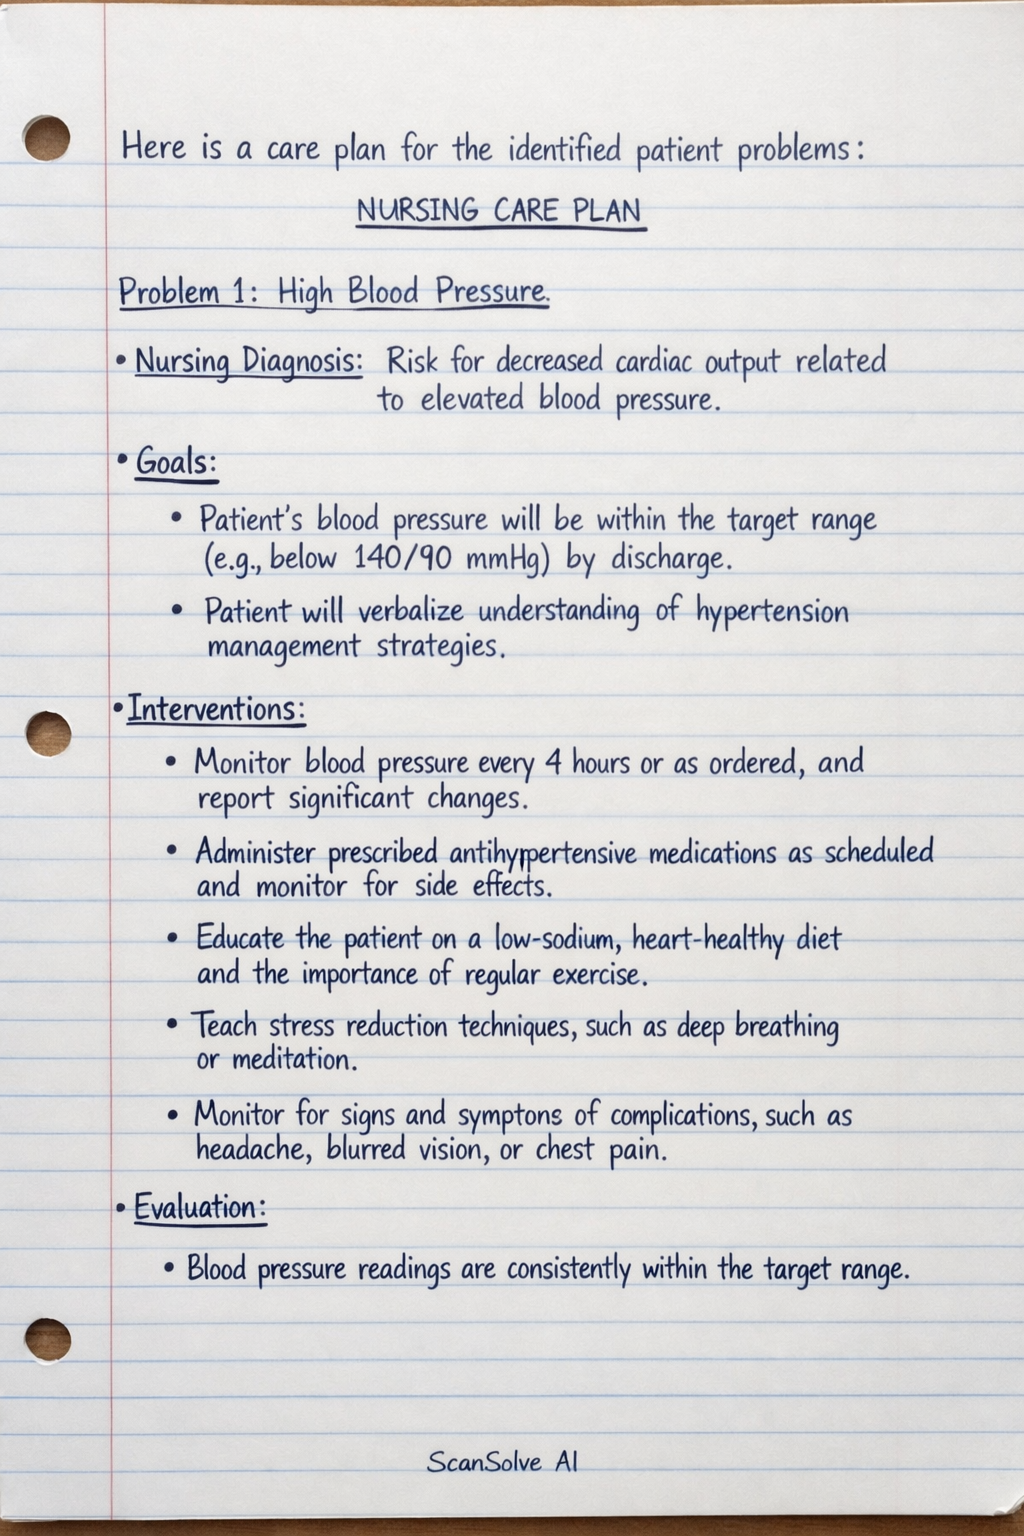 Here is a care plan for the identified patient problems:
NURSING CARE PLAN
Problem 1: High Blood Pressure.
• Nursing Diagnosis: Risk for decreased cardiac output related
to elevated blood pressure.
• Goals:
• Patient's blood pressure will be within the target range
(e.g., below 140/90 mmHg) by discharge.
• Patient will verbalize understanding of hypertension
management strategies.
• Interventions:
• Monitor blood pressure every 4 hours or as ordered, and
report significant changes.
• Administer prescribed antihyppertensive medications as scheduled
and monitor for side effects.
• Educate the patient on a low-sodium, heart-healthy diet
and the importance of regular exercise.
• Teach stress reduction techniques, such as deep breathing
or meditation.
• Monitor for signs and symptons of complications, such as
headache, blurred vision, or chest pain.
• Evaluation:
• Blood pressure readings are consistently within the target range.
ScanSolve AI